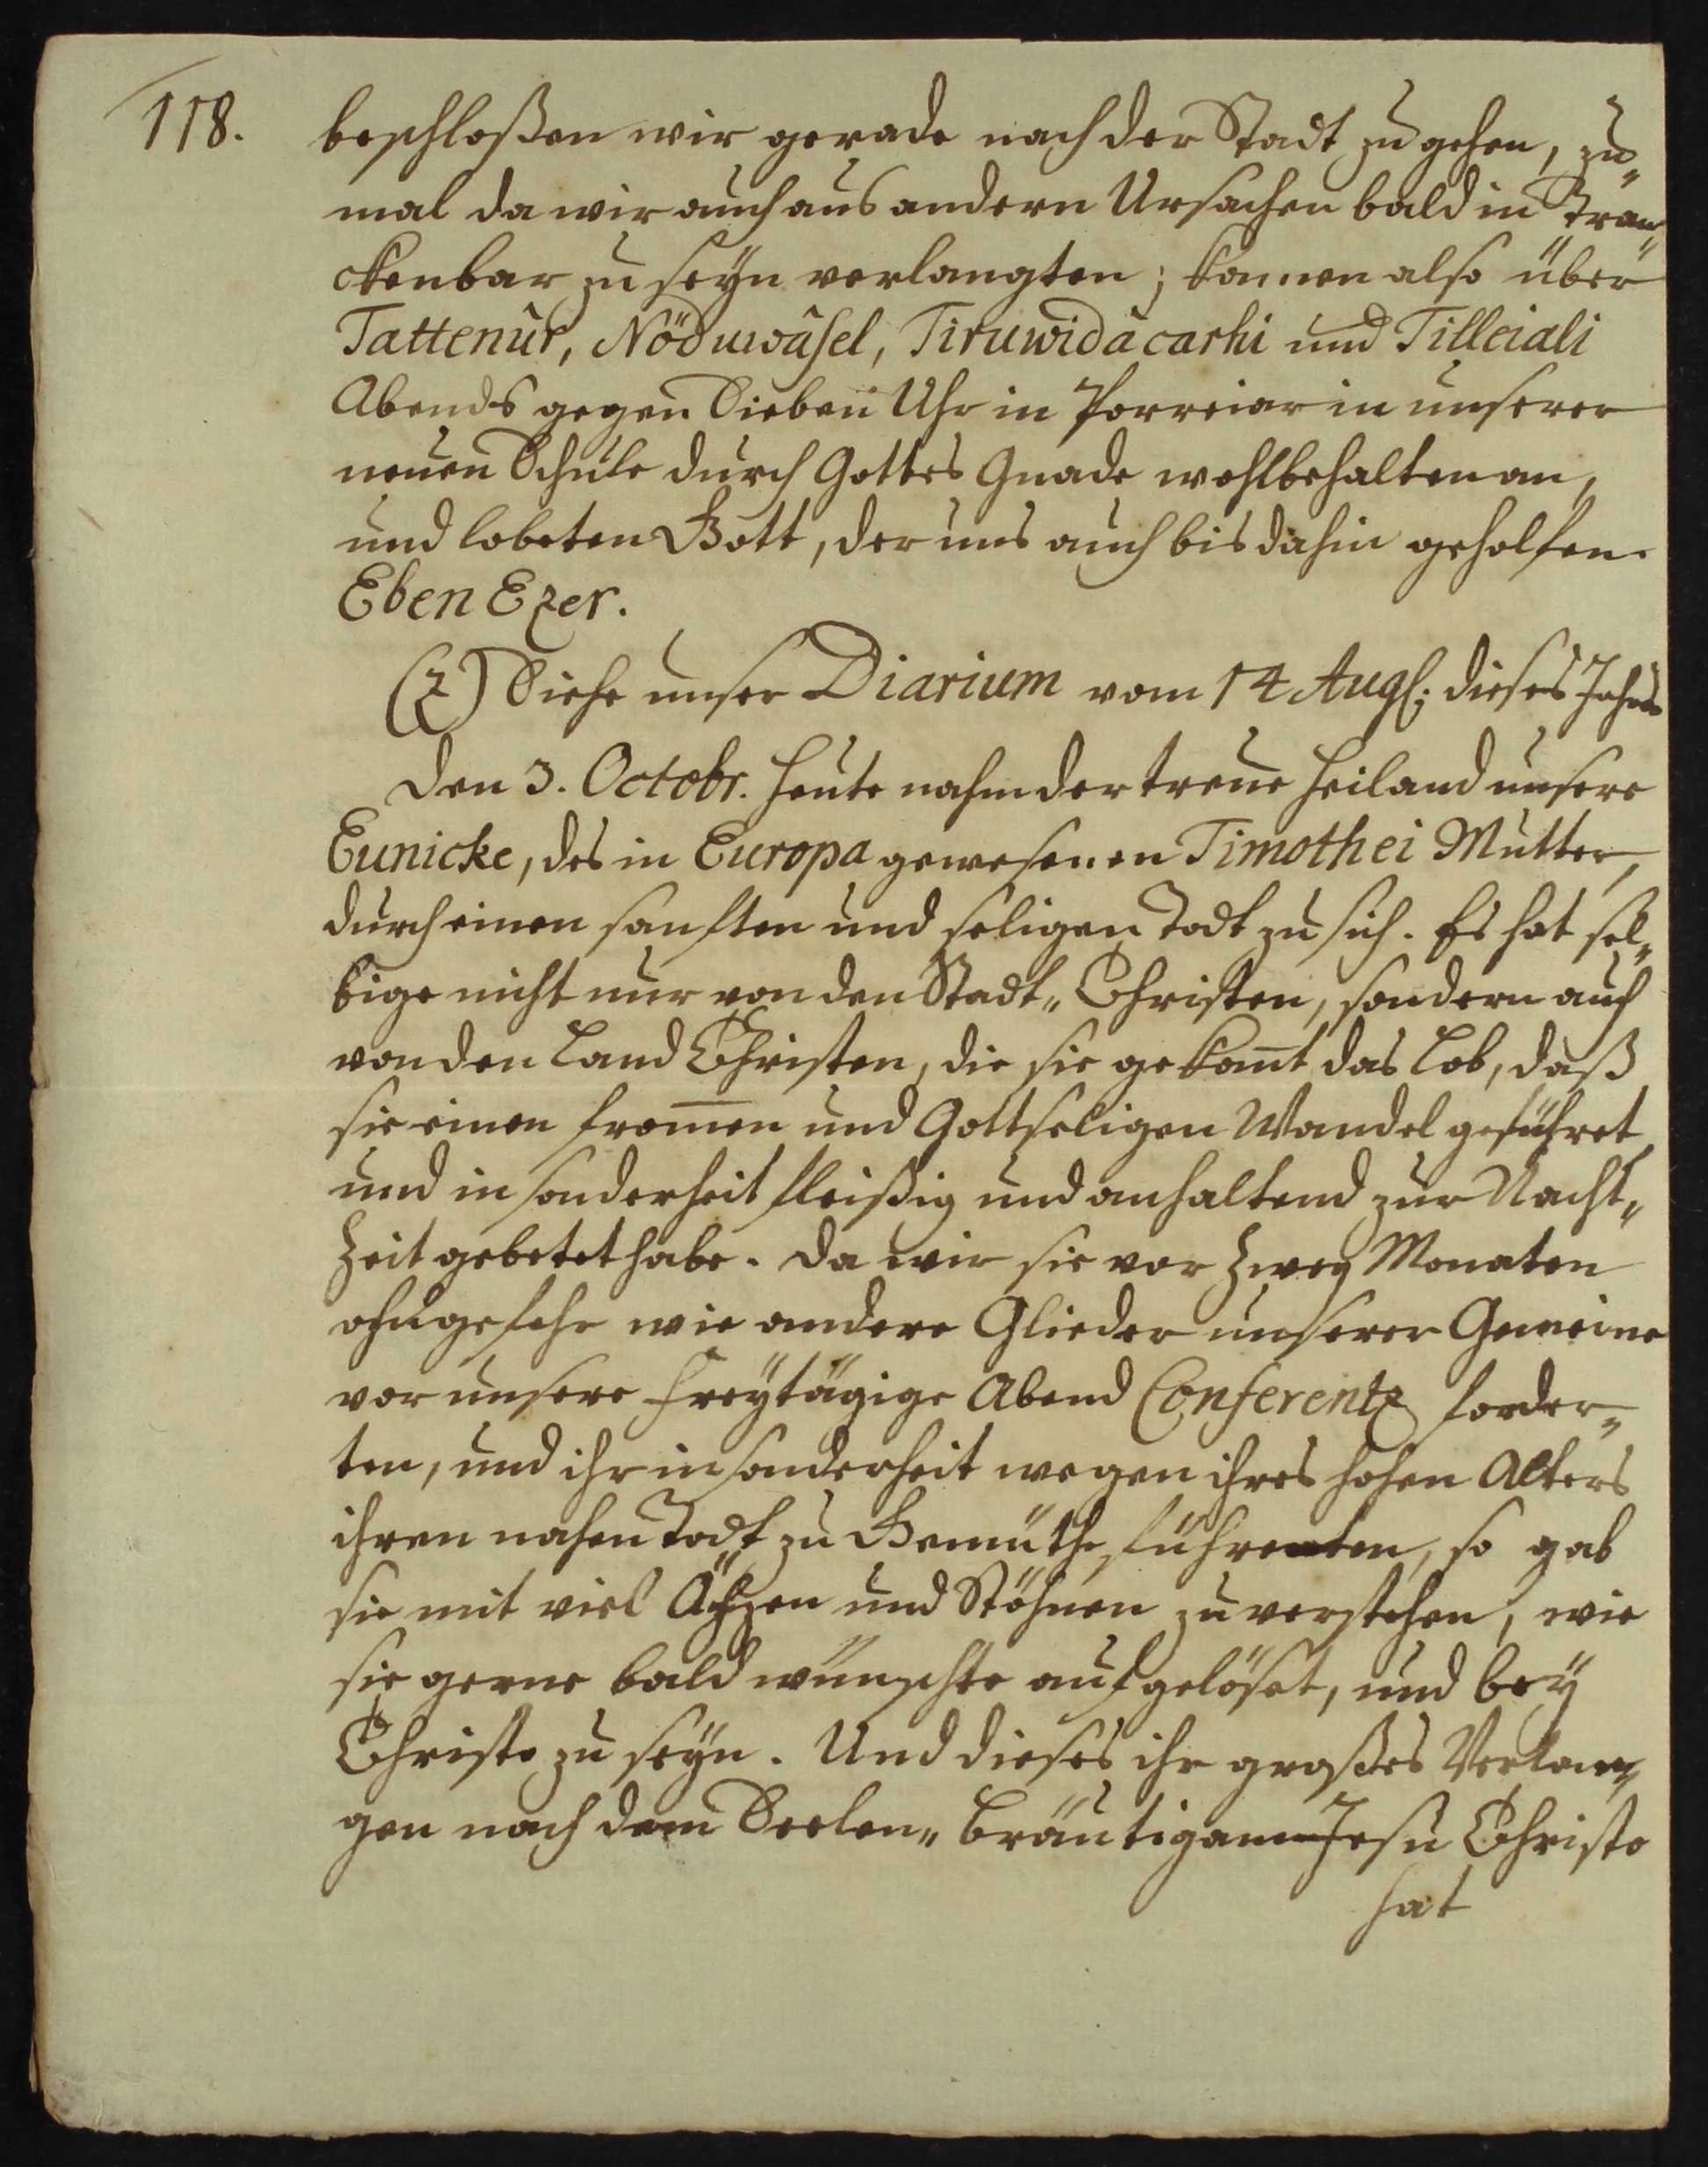 118.
beschloßen wir gerade nach der Stadt zu gehen, zu„
mal da wir auch aus andern Ursachen bald in Tran„
ckenbar zu seÿn verlangten; kamen also über
Tattenûr, Nöduwâsel, Tiruwidàcarhi und Tilleiali
Abends gegen Sieben Uhr in Porreiar in unserer
neuen Schule durch Gottes Gnade wohlbehalten an,
und lobeten Gott, der uns auch bis dahin geholfen.
Eben Ezer.
(z) Siehe unser Diarium vom 14 Augs: dieses Jahrs
Den 3. Octobr. Heute nahm der treue Heiland unsere
Eunicke, des in Europa gewesenen Timothei Mutter,
durch einen sanften und seligen Todt zu sich. Es hat sel„
bige nicht nur von den Stadt„ Christen, sondern auch
von den Land Christen, die sie gekan̄t das Lob, daß
sie einen from̄en und Gottseligen Wandel geführet
und in sonderheit fleißig und anhaltend zur Nacht„
Zeit gebetet habe. Da wir sie vor Zweÿ Monaten
ohngefehr wie andere Glieder unserer Gemeine
vor unsere Freÿtägige Abend Conferentz forder„
ten, und ihr in sonderheit wegen ihres hohen Alters
ihren nahen Todt zu Gemüthe führeten, so gab
sie mit viel Ächzen und Stöhnen zu verstehen, wie
sie gerne bald wünschte aufgelöset, und beÿ
Christo zu seÿn. Und dieses ihr großes Verlan„
gen nach dem Seelen„ Bräutigam Jesu Christo
hat